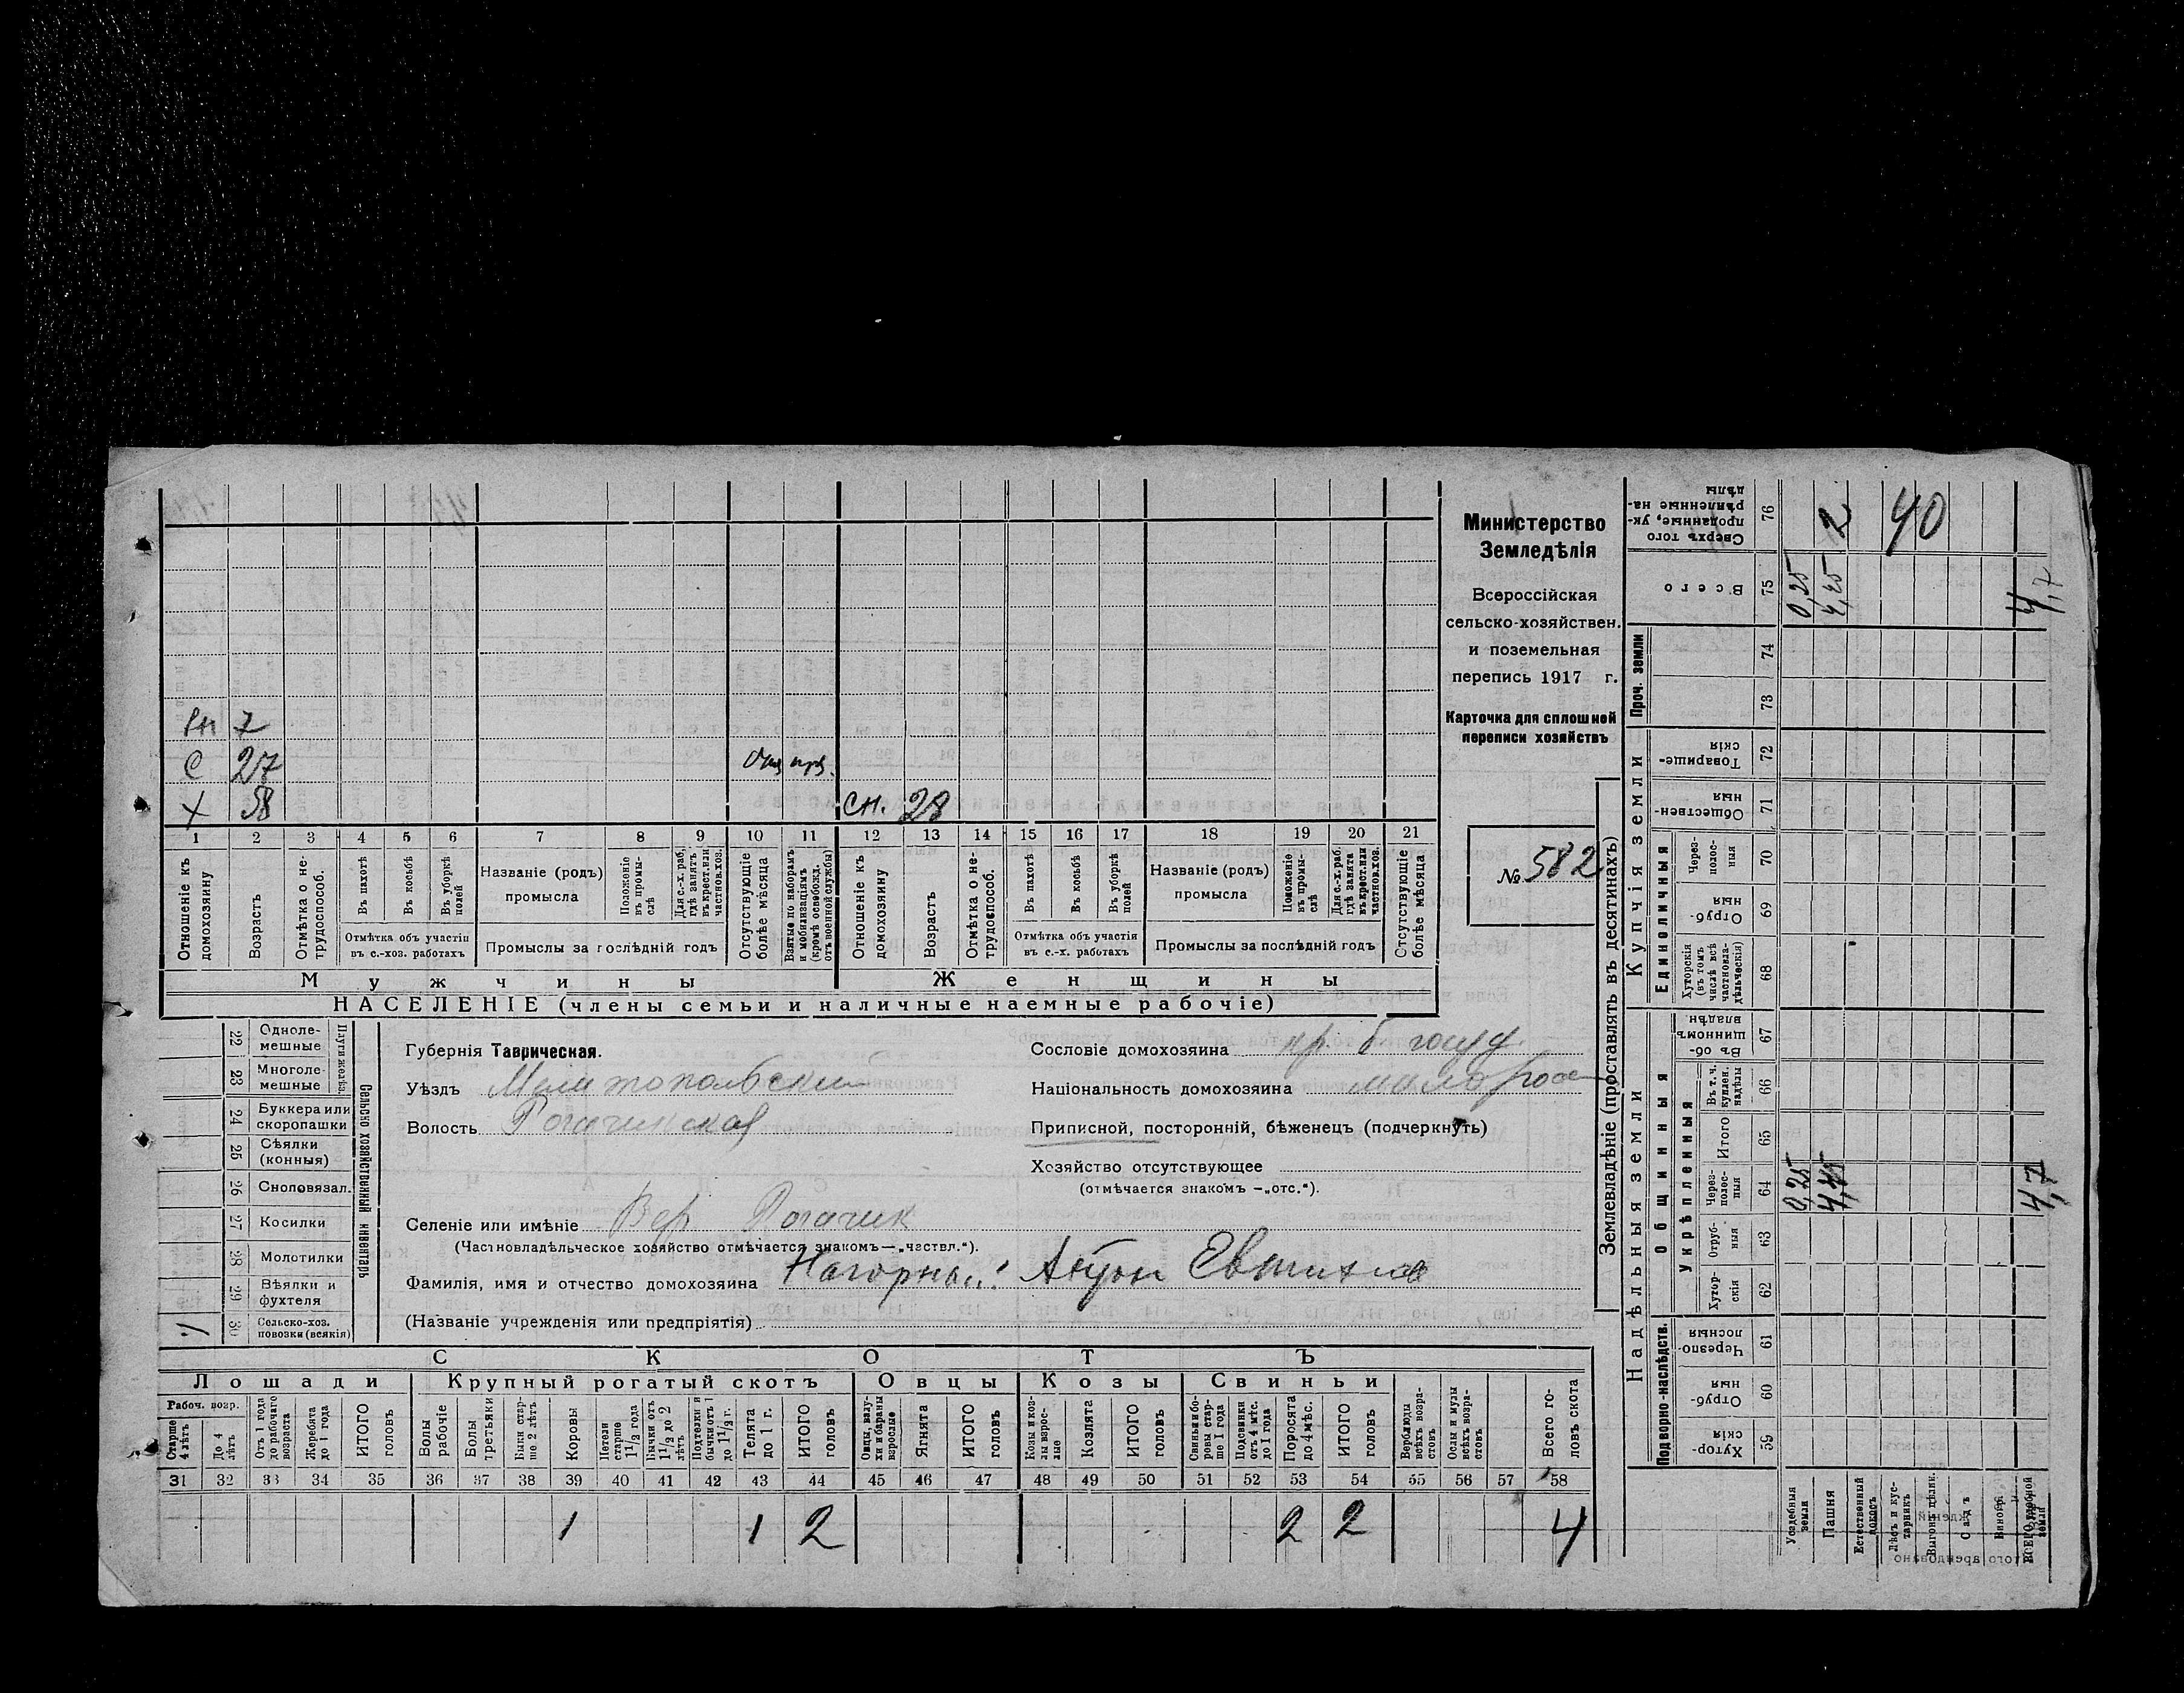 Министерство
Земледѣлія
Всероссійская
сельско-хозяйствен.
и поземельная
перепись 1917 г.
Карточка для сплошной
переписи хозяйствъ
№ 582
7
С 27
Х 58
сн. 28
1 2 3 4 5 6 7 8 9 10 11 12 13 14 15 16 17 18 19 20 21
Отношеніе къ домохозяину
Возрастъ
Отмѣтка о не-трудоспособ.
Въ пахотѣ
Въ косьбѣ
Въ уборкѣ полей
Отмѣтка объ участіи
въ с.-хоз. работахъ
Названіе (родъ)
промысла
Положеніе въ промы-слѣ
Для с.-х. раб. гдѣ занятъ въ крест. или частнов. хоз.
Промыслы за послѣдній годъ
Отсутствующіе болѣе мѣсяца
Взятые по наборамъ и мобилизаціямъ (кромѣ освобожд. отъ военной службы)
Отношеніе къ домохозяину
Возрастъ
Отмѣтка о не-трудоспособ.
Въ пахотѣ
Въ косьбѣ
Въ уборкѣ полей
Отмѣтка объ участія
въ с.-х. работахъ
Названіе (родъ)
промысла
Положеніе въ промы-слѣ
Для с.-х. раб. гдѣ занята въ крест. или частнов. хоз.
Промыслы за послѣдній годъ
Отсутствующіе болѣе мѣсяца
Мужчины Женщины
НАСЕЛЕНІЕ (члены семьи и наличные наемные рабочіе)
22 Одноле-мешные
23 Многоле-мешные
Плуги желѣз.
24 Буккера или скоропашки
25 Сѣялки (конныя)
26 Сноповязал.
27 Косилки
28 Молотилки
29 Вѣялки и фухтеля
30 Сельско-хоз. повозки (всякія) 1
Сельско хозяйственный инвентарь
Губернія Таврическая.
Уѣздъ Мелитопольский
Волость Рогачикская
Сословіе домохозяина
Національность домохозяина малорос
Приписной, посторонній, бѣженецъ (подчеркнуть)
Хозяйство отсутствующее
(отмѣчается знакомъ —„отс.“).
Селеніе или имѣніе Вер Рогачик
(Частновладѣльческое хозяйство отмѣчается знакомъ—„частвл.“).
Фамилія, имя и отчество домохозяина Нагорный Антон Евтихиев
(Названіе учрежденія или предпріятія)
СКОТЪ
Лошади Крупный рогатый скотъ Овцы Козы Свиньи
Рабоч. возр.
Старше 4 лѣтъ
До 4 лѣтъ
Отъ 1 года до рабочаго возраста
Жеребята до 1 года
ИТОГО головъ
Волы рабочіе
Волы третьяки
Быки стар-ше 2 лѣтъ
Коровы
Нетели старше 1½ года
Бычки отъ 1½ до 2 лѣтъ
Подтелки и бычки отъ 1 до 1½ г.
Телята до 1 г.
ИТОГО головъ
Овцы, валу-хи и бараны взрослые
Ягнята
ИТОГО головъ
Козы и коз-лы взрос-лые
Козлята
ИТОГО головъ
Свиньи и бо-ровы стар-ше 1 года
Подсвинки отъ 4 мѣс. до 1 года
Поросята до 4 мѣс.
ИТОГО головъ
Верблюды всѣхъ возра-стовъ
Ослы и мулы всѣхъ возра-стовъ
Всего го-ловъ скота
31 32 33 34 35 36 37 38 39 40 41 42 43 44 45 46 47 48 49 50 51 52 53 54 55 56 57 58
1 1 2 2 2 4
Землевладѣніе (проставлять въ десятинахъ)
Надѣльныя земли Купчія земли Проч. земли
Подворно-наслѣдств.
Общинныя
Укрѣпленныя
Единоличныя
Хутор-скія 59
Отруб-ныя 60
Черезпо-лосныя 61
Хутор-скія 62
Отруб-ныя 63
Через-полос-ныя 64
Итого 65
Въ т. ч. куплен. надѣлы 66
Въ об-щинномъ владѣн. 67
Хуторскія (въ томъ числѣ всѣ частновла-дѣльческія) 68
Отруб-ныя 69
Через-полос-ныя 70
Обществен-ныя 71
Товарище-скія 72
73
74
Всего 75
Сверхъ того проданные, ук-рѣпленные на-дѣлы 76
Усадебныя земли
Пашня
Естественный покосъ
Лѣсъ и кус-тарникъ
Выгонъ
Садъ
Виногр.
ВСЕГО удобной земли
0,25 4,45 4,7
0,25 4,45 4,7
2 40